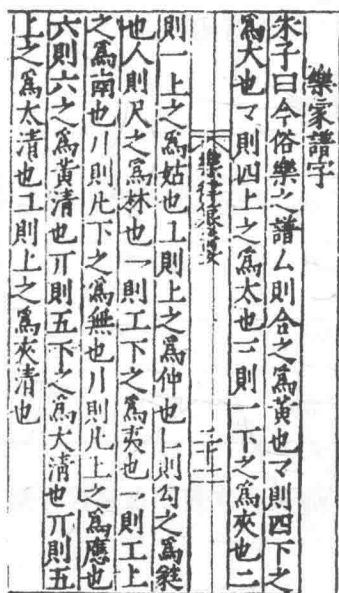 樂家譜字
朱子曰今俗樂之譜厶則合之爲黄也マ則四下之
爲大也マ則四上之爲太也二則一下之爲夾也二
二十一
則一上之爲姑也丄則上之爲仲也乚則勾之爲蕤
也人則尺之爲林也一則工下之爲夷也一則工上
之爲南也八則凡下之爲無也八則凡上之爲應也
六則六之爲黄清也丌則五下之爲大清也丌則五
上之爲太清也工則上之爲夾清也